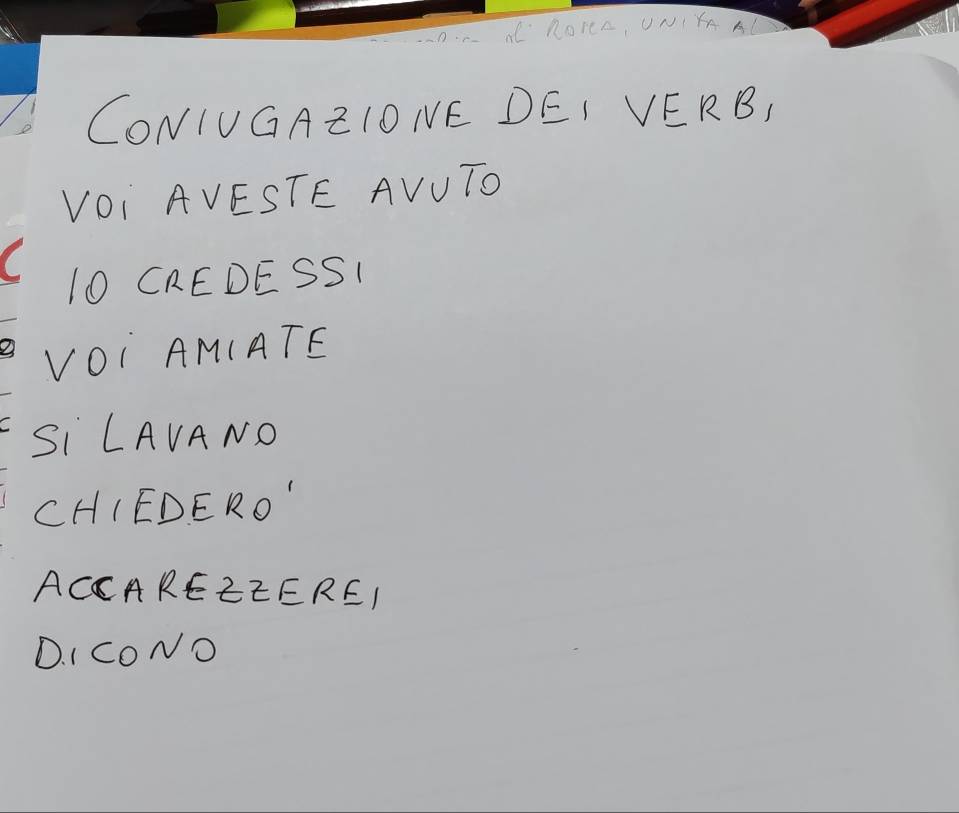 di Roma, UNITÀ AL
CONIUGAZIONE DEI VERBI
VOI AVESTE AVUTO
IO CREDESSI
VOI AMIATE
SI LAVANO
CHIEDERO'
ACCAREZZEREI
DICONO